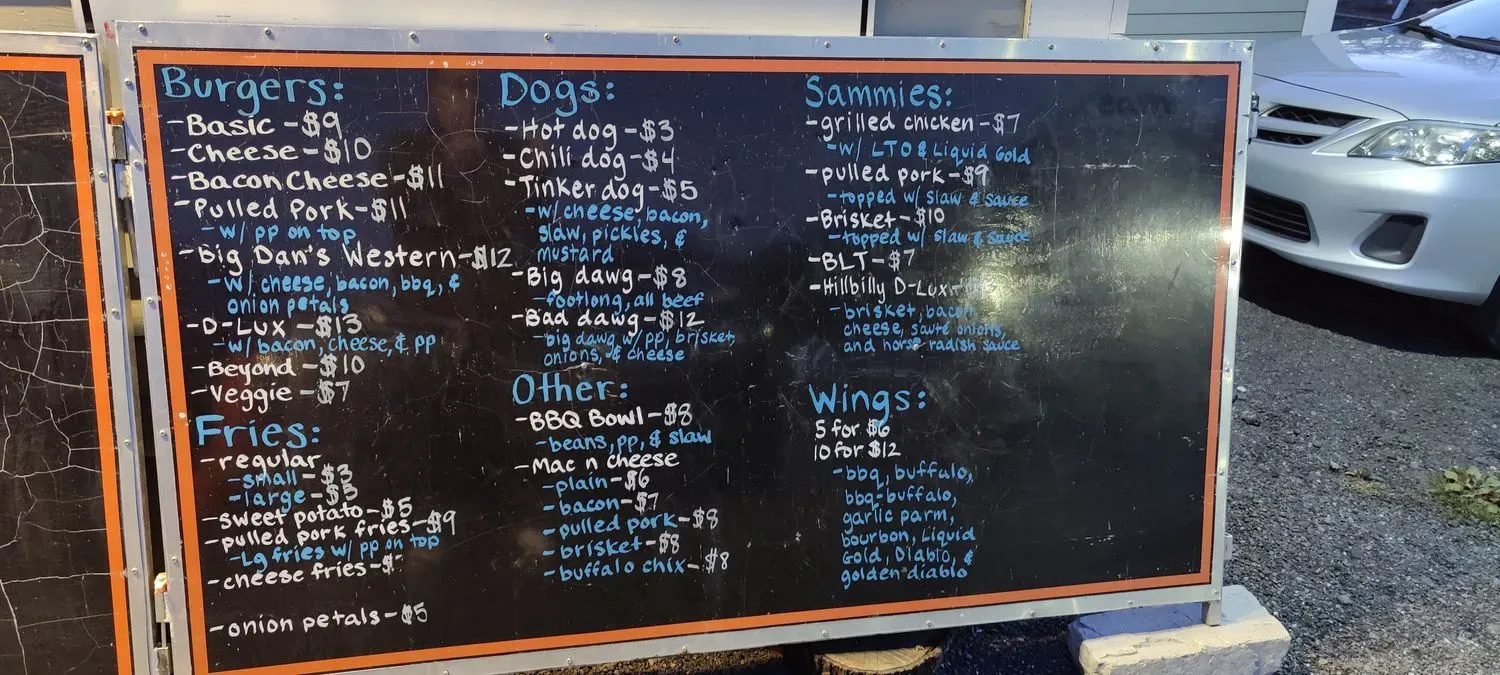 Burgers:
-Basic-$9
-Cheese-$10
-Bacon Cheese-$11
-Pulled Pork-$11
-w/ pp on top
-big Dan's Western-$12
-w/ cheese, bacon, bbq, &
onion petals
-D-Lux-$13
-w/ bacon, cheese, & pp
-Beyond-$10
-Veggie-$7
Fries:
-regular
-small-$3
-large-$5
-sweet potato-$5
-pulled pork fries-$9
-Lg fries w/ pp on top
-cheese fries-$
-onion petals-$5
Dogs:
-Hot dog-$3
-Chili dog-$4
-Tinker dog-$5
-w/ cheese, bacon,
slaw, pickles, &
mustard
-Big dawg-$8
-footlong, all beef
-Bad dawg-$12
-big dawg w/ pp, brisket,
onions, & cheese
Other:
-BBQ Bowl-$8
-beans, pp, & slaw
-Mac n cheese
-plain-$6
-bacon-$7
-pulled pork-$8
-brisket-$8
-buffalo chix-$8
Sammies:
-grilled chicken-$7
-w/ LTO & Liquid Gold
-pulled pork-$9
-topped w/ slaw & sauce
-Brisket-$10
-topped w/ slaw & sauce
-BLT-$7
-Hillbilly D-Lux-
-brisket, bacon
cheese, sauté onions,
and horse radish sauce
Wings:
5 for $6
10 for $12
-bbq, buffalo,
bbq-buffalo,
garlic parm,
bourbon, Liquid
Gold, Diablo, &
golden diablo